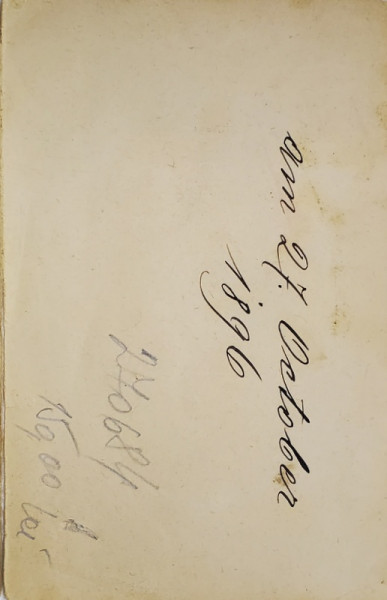 am 27. October
1896
270684
15,00 lei